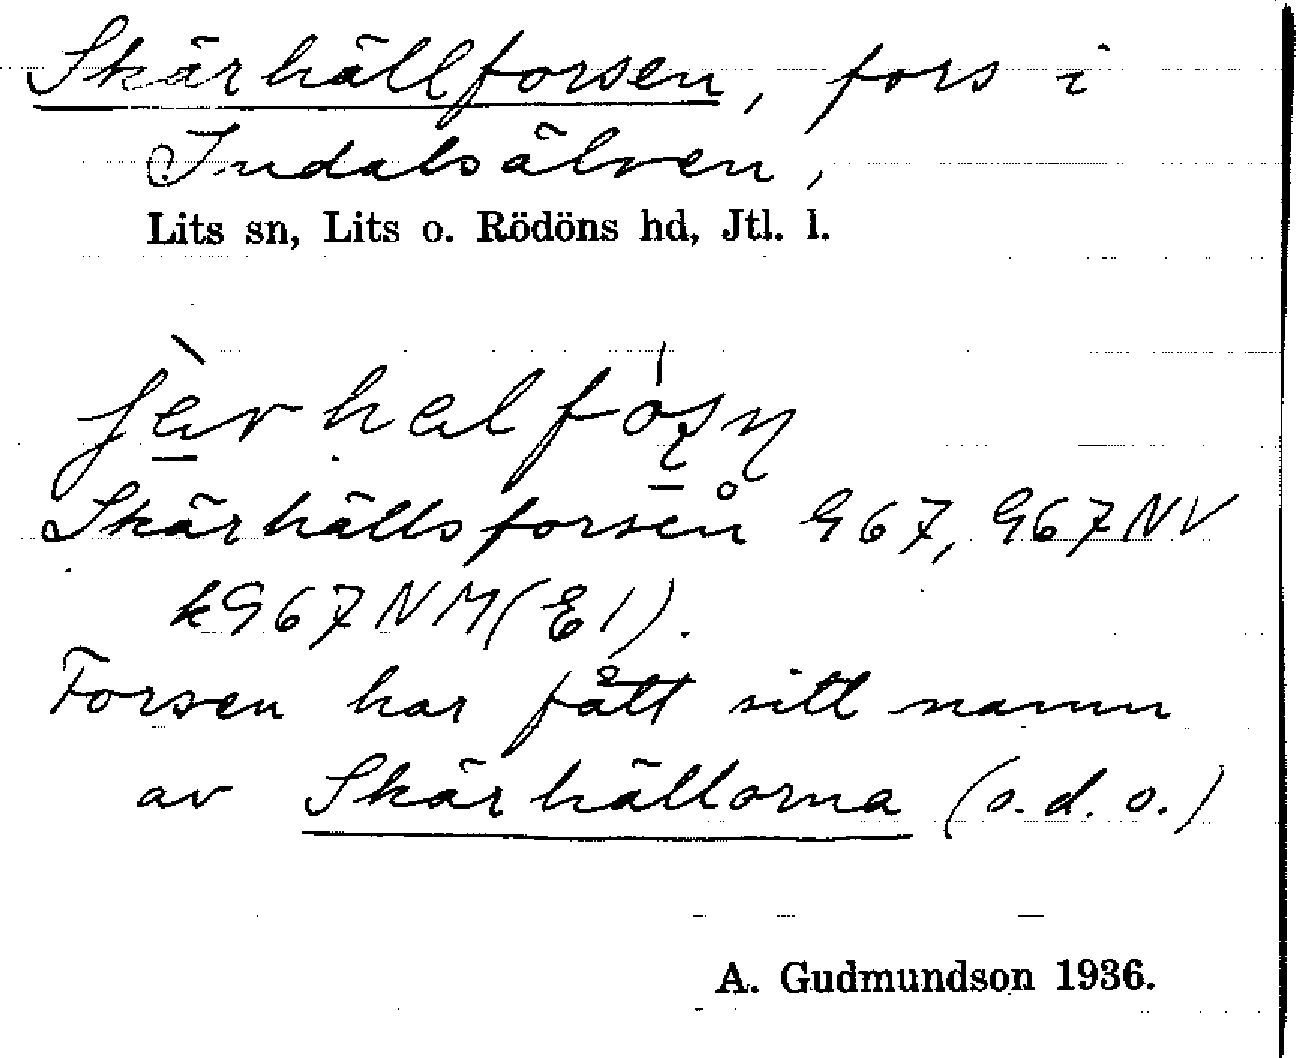 Skärhällforsen, fors i
Indalsälven,
Lits sn, Lits o. Rödöns hd, Jtl. l.
Skärhällsforsen G67, G67NV
kG67NM(E1).
Forsen har fått sitt namn
av Skärhällorna (o.d.o.)
A. Gudmundson 1936.